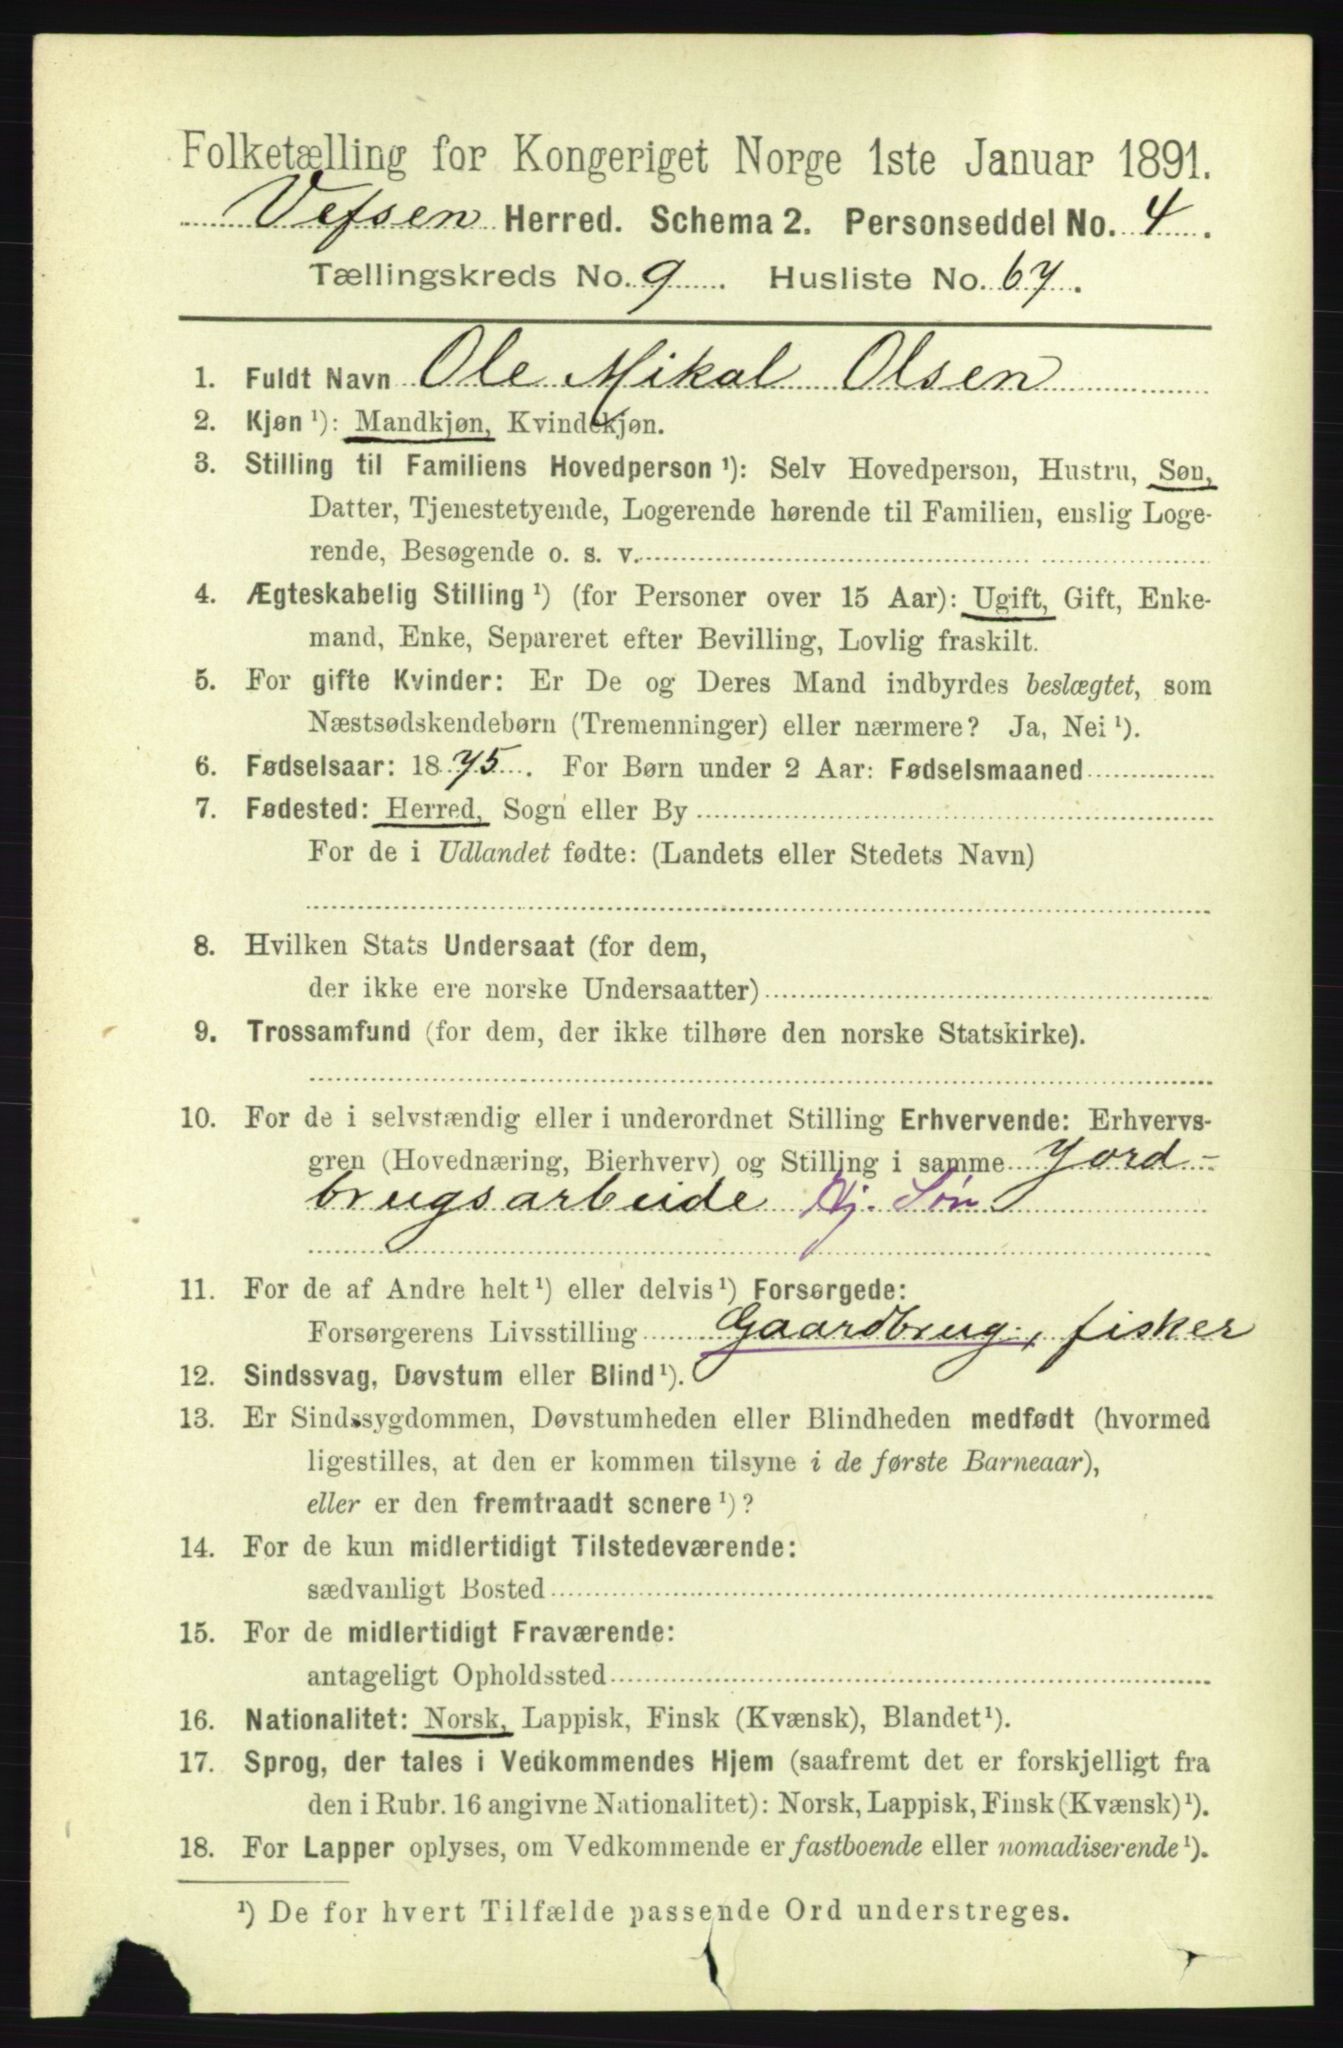 Folketælling for Kongeriget Norge 1ste Januar 1891.
Vefsen Herred. Schema 2. Personseddel No. 4.
Tællingskreds No. 9. Husliste No. 67.
1. Fuldt Navn Ole Mikal Olsen
2. Kjøn ¹): Mandkjøn, Kvindekjøn.
3. Stilling til Familiens Hovedperson ¹): Selv Hovedperson, Hustru, Søn,
Datter, Tjenestetyende, Logerende hørende til Familien, enslig Loge-
rende, Besøgende o. s. v.
4. Ægteskabelig Stilling ¹) (for Personer over 15 Aar): Ugift, Gift, Enke-
mand, Enke, Separeret efter Bevilling, Lovlig fraskilt.
5. For gifte Kvinder: Er De og Deres Mand indbyrdes beslægtet, som
Næstsødskendebørn (Tremenninger) eller nærmere? Ja, Nei ¹).
6. Fødselsaar: 1875. For Børn under 2 Aar: Fødselsmaaned
7. Fødested: Herred, Sogn eller By
For de i Udlandet fødte: (Landets eller Stedets Navn)
8. Hvilken Stats Undersaat (for dem,
der ikke ere norske Undersaatter)
9. Trossamfund (for dem, der ikke tilhøre den norske Statskirke).
10. For de i selvstændig eller i underordnet Stilling Erhvervende: Erhvervs-
gren (Hovednæring, Bierhverv) og Stilling i samme Jord-
brugsarbeide Hj. Søn
11. For de af Andre helt ¹) eller delvis ¹) Forsørgede:
Forsørgerens Livsstilling Gaardbrug., fisker
12. Sindssvag, Døvstum eller Blind ¹).
13. Er Sindssygdommen, Døvstumheden eller Blindheden medfødt (hvormed
ligestilles, at den er kommen tilsyne i de første Barneaar),
eller er den fremtraadt senere ¹)?
14. For de kun midlertidigt Tilstedeværende:
sædvanligt Bosted
15. For de midlertidigt Fraværende:
antageligt Opholdssted
16. Nationalitet: Norsk, Lappisk, Finsk (Kvænsk), Blandet ¹).
17. Sprog, der tales i Vedkommendes Hjem (saafremt det er forskjelligt fra
den i Rubr. 16 angivne Nationalitet): Norsk, Lappisk, Finsk (Kvænsk) ¹).
18. For Lapper oplyses, om Vedkommende er fastboende eller nomadiserende ¹).
¹) De for hvert Tilfælde passende Ord understreges.